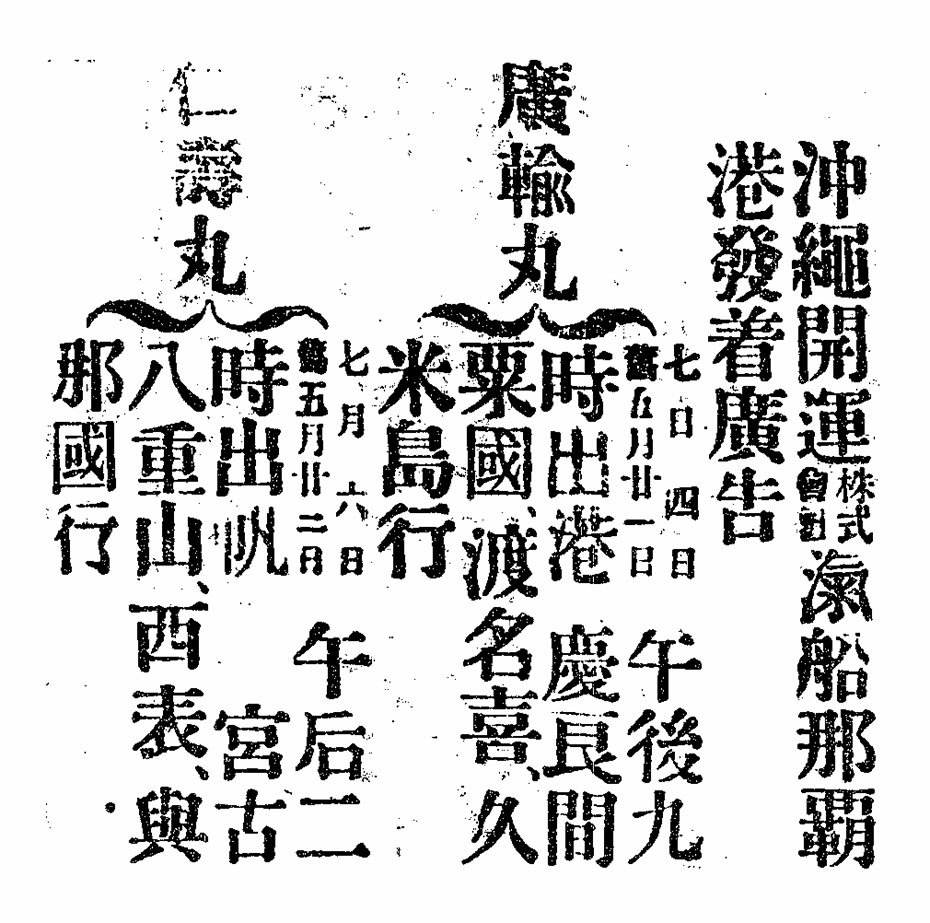 沖繩開運株式會社滊船那覇
港發着廣告
廣輸丸
七日四日
舊五月廿一日
午後九
時出港 慶良間
粟國、渡名喜、久
米島行
仁壽丸
七月六日
舊五月廿二日
午后二
時出帆 宮古
八重山、西表、與
那國行